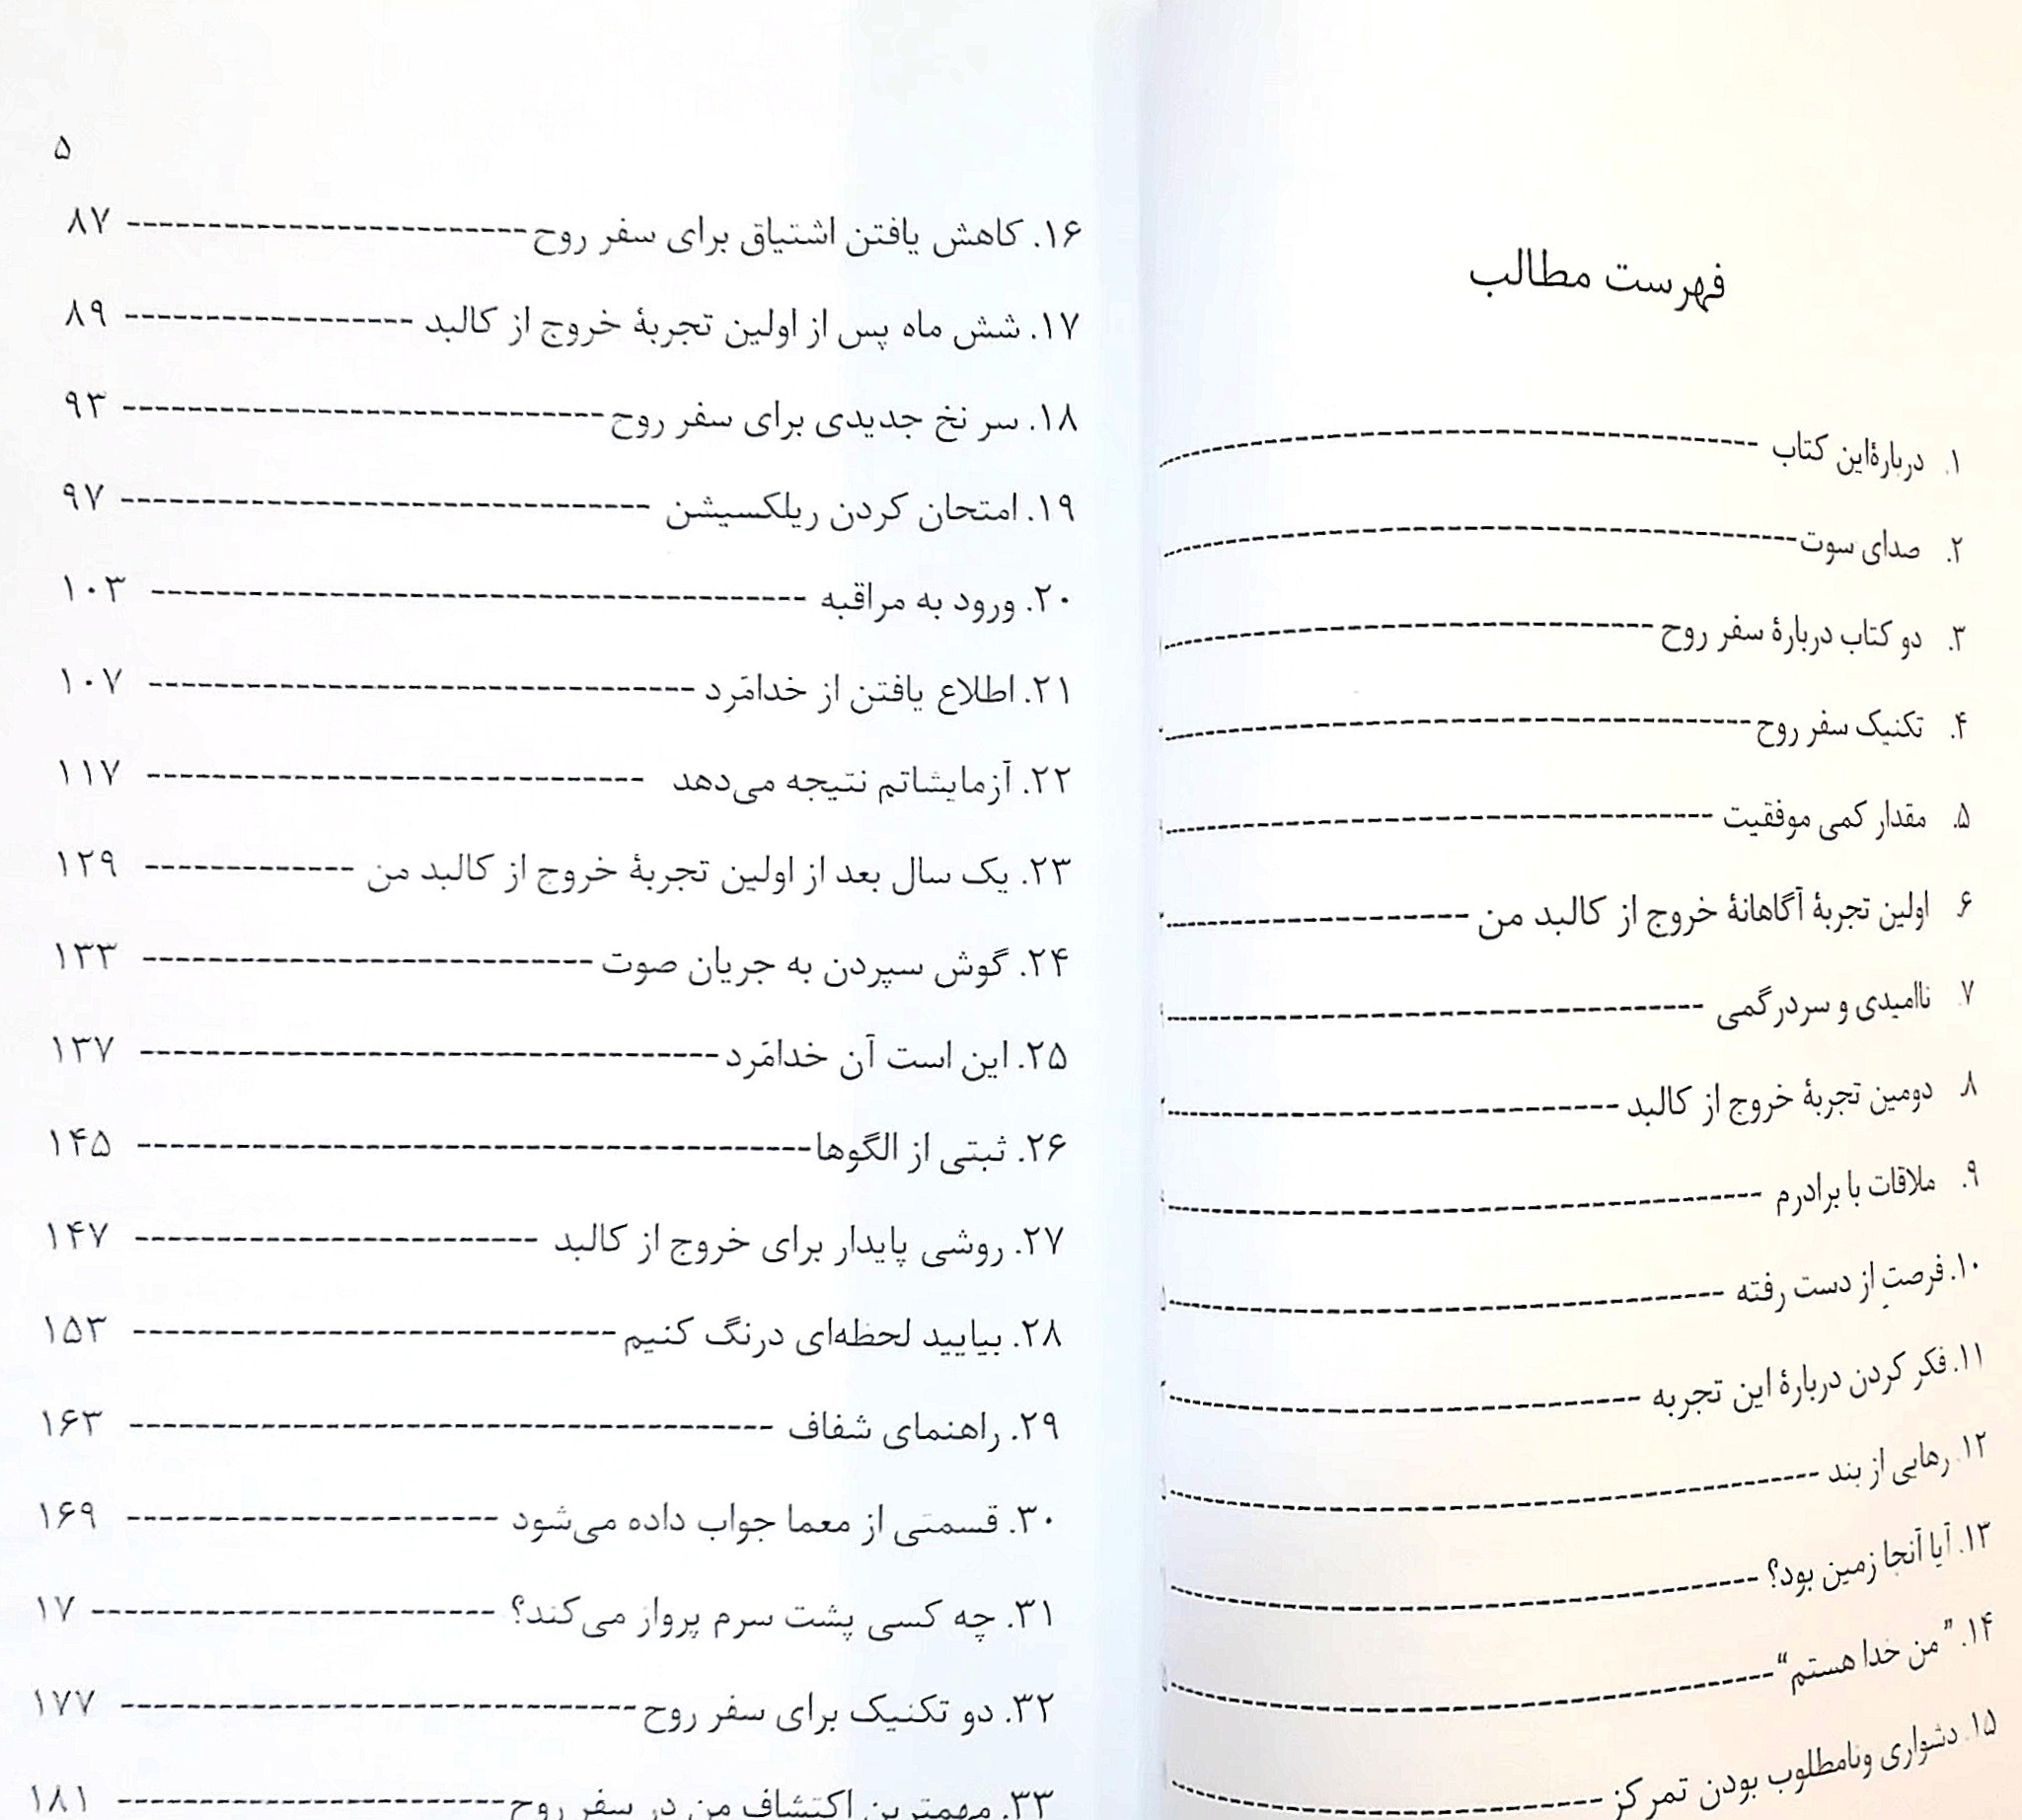 فهرست مطالب
۱. دربارۀاین کتاب ----------
۲. صدای سوت ----------
۳. دو کتاب دربارۀ سفر روح ----------
۴. تکنیک سفر روح ----------
۵. مقدار کمی موفقیت ----------
۶. اولین تجربۀ آگاهانۀ خروج از کالبد من ----------
۷. ناامیدی و سردرگمی ----------
۸. دومین تجربۀ خروج از کالبد ----------
۹. ملاقات با برادرم ----------
۱۰. فرصتِ از دست رفته ----------
۱۱. فکر کردن دربارۀ این تجربه ----------
۱۲. رهایی از بند ----------
۱۳. آیا آنجا زمین بود؟ ----------
۱۴. "من خدا هستم" ----------
۱۵. دشواری ونامطلوب بودن تمرکز ----------
۵
۱۶. کاهش یافتن اشتیاق برای سفر روح ---------- ۸۷
۱۷. شش ماه پس از اولین تجربۀ خروج از کالبد ---------- ۸۹
۱۸. سر نخ جدیدی برای سفر روح ---------- ۹۳
۱۹. امتحان کردن ریلکسیشن ---------- ۹۷
۲۰. ورود به مراقبه ---------- ۱۰۳
۲۱. اطلاع یافتن از خدامَرد ---------- ۱۰۷
۲۲. آزمایشاتم نتیجه می‌دهد ---------- ۱۱۷
۲۳. یک سال بعد از اولین تجربۀ خروج از کالبد من ---------- ۱۲۹
۲۴. گوش سپردن به جریان صوت ---------- ۱۳۳
۲۵. این است آن خدامَرد ---------- ۱۳۷
۲۶. ثبتی از الگوها ---------- ۱۴۵
۲۷. روشی پایدار برای خروج از کالبد ---------- ۱۴۷
۲۸. بیایید لحظه‌ای درنگ کنیم ---------- ۱۵۳
۲۹. راهنمای شفاف ---------- ۱۶۳
۳۰. قسمتی از معما جواب داده می‌شود ---------- ۱۶۹
۳۱. چه کسی پشت سرم پرواز می‌کند؟ ---------- ۱۷
۳۲. دو تکنیک برای سفر روح ---------- ۱۷۷
۳۳. مهمترین اکتشاف من در سفر روح ---------- ۱۸۱